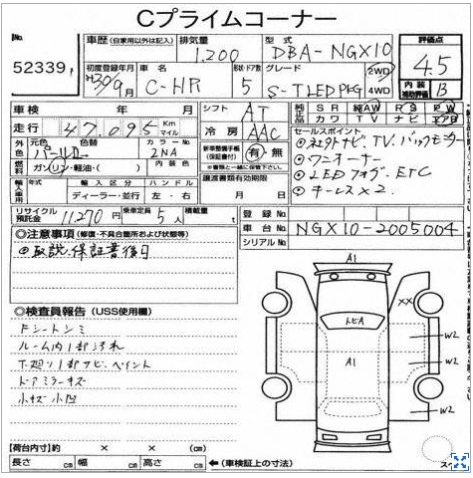 Cプライムコーナー
No.
52339
車歴 (自家用以外は記入)
排気量
1,200
型式
DBA-NGX10
評価点
4.5
初度登録年月
H30/9月
車名
C-HR
形状・ドア数
5
グレード
S-T LED PKG
2WD
4WD
内装
補助評価
B
車検 年 月
シフト
AT
純正部品
SR 純AW PS PW
カワ TV ナビ エアB
走行
47,095
Km
マイル
冷房
AAC
セールスポイント
社外ナビ, TV, バックモニター
ワンオーナー
LEDフォグ, ETC
キーレス×2
外色
元色
色替
パールII
カラーNo.
2NA
燃料
ガソリン・軽油・( )
内装色
新車整備手帳
(保証書付)
有・無
輸入車用
年式
輸入区分
ハンドル
ディーラー・並行
左・右
譲渡書類有効期限
月 日
リサイクル
預託金
11,270 円
乗車定員
5人
積載量
t
登録No.
車台No.
NGX10-2005004
シリアルNo.
◎注意事項 (修復・不具合箇所および状態等)
取説・保証書後日
◎検査員報告 (USS使用欄)
Fシートシミ
ルーム内1部汚れ
下廻り1部サビ, ペイント
ドアミラーキズ
小キズ小凹
A1
××
A1
W2
W2
W2
【荷台内寸】約 × × (cm)
長さ cm 幅 cm 高さ cm
←(車検証上の寸法)